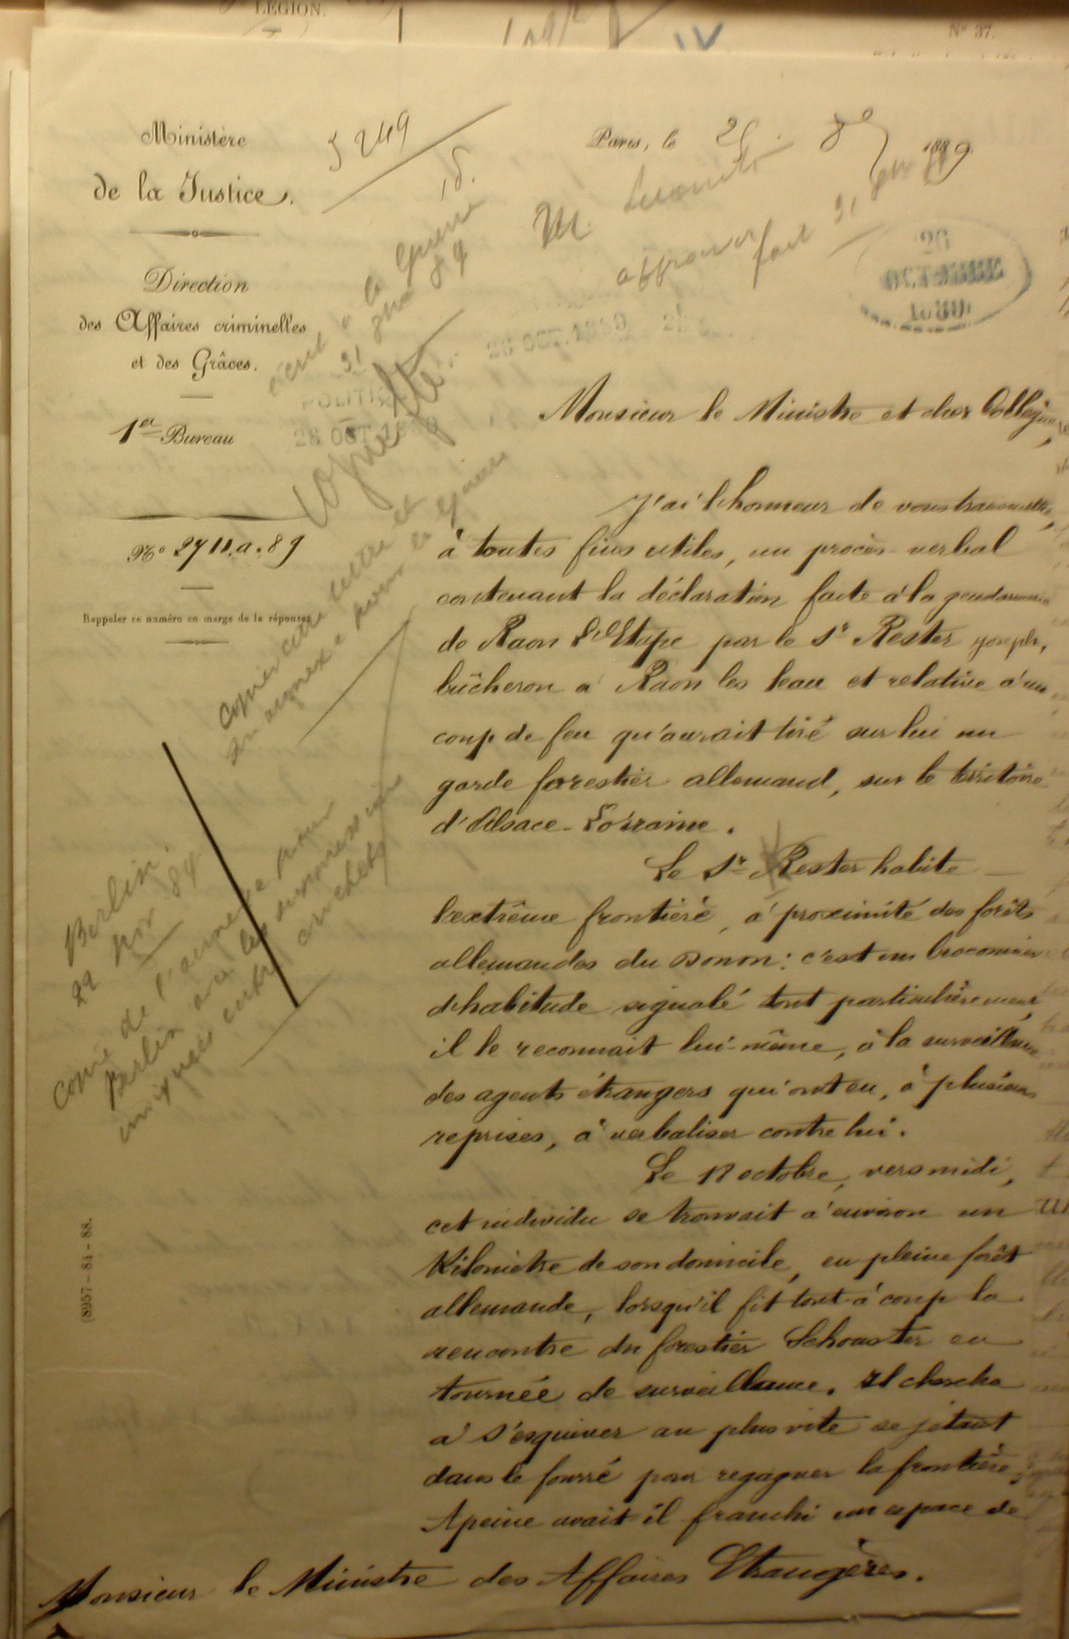 LÉGION.
N° 37.
Ministère
de la Justice.
Direction
des Affaires criminelles
et des Grâces.
1er Bureau
N° 2711.a.89
Rappeler ce numéro en marge de la réponse.
5249
Paris, le 25 8e 1889
M.
approuver
fait 31
26
OCTOBRE
1889
26 OCT. 1889
POLITI
28 OCT. 18
écrit à la Guerre
31 8bre 89
copier cette lettre et
son annexe pour la Guerre
Berlin
22 Nov 89
copie de l'annexe pour
Berlin avec les suppressions
indiquées entre crochets
(8957-84-88.
Monsieur le Ministre et cher Collègue,
J'ai l'honneur de vous transmettre,
à toutes fins utiles, un procès-verbal
contenant la déclaration faite à la gendarmerie
de Raon L'Etape par le Sr Rester Joseph,
bûcheron à Raon les leau et relative à un
coup de feu qu'aurait tiré sur lui un
garde forestier allemand, sur le territoire
d'Alsace-Lorraine.
Le Sr Rester habite
l'extrême frontière, à proximité des forêts
allemandes du Donon: c'est un braconnier
d'habitude signalé tout particulièrement,
il le reconnait lui-même, à la surveillance
des agents étrangers qui ont eu, à plusieurs
reprises, à verbaliser contre lui.
Le 17 octobre, vers midi,
cet individu se trouvait à environ un
Kilomètre de son domicile, en pleine forêt
allemande, lorsqu'il fit tout-à-coup la
rencontre du forestier Schouster en
tournée de surveillance. Il chercha
à s'esquiver au plus vite se jetant
dans le fourré pour regagner la frontière
Apeine avait il franchi un espace de
Monsieur le Ministre des Affaires Etrangères.